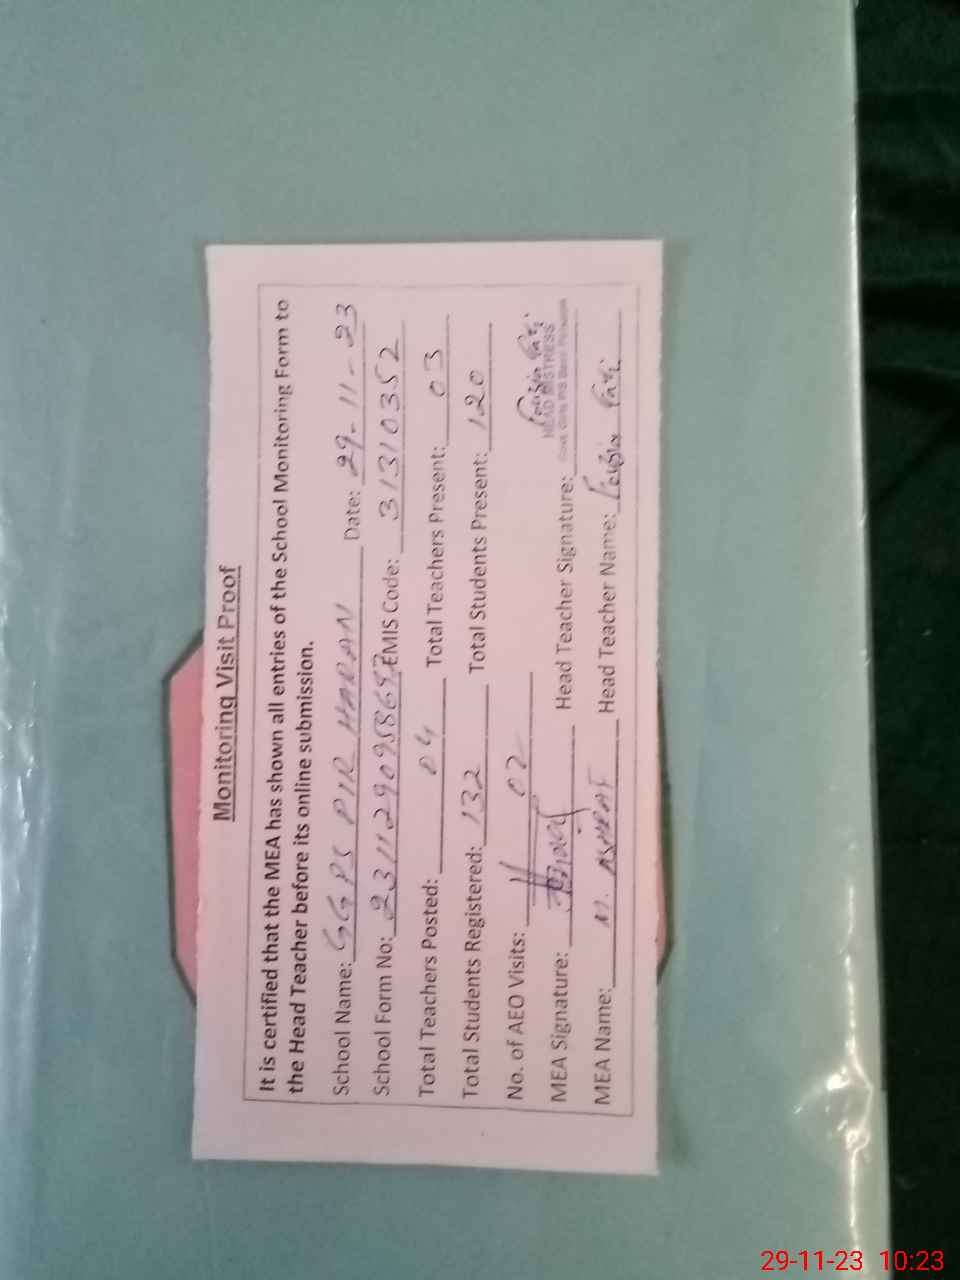 Monitoring Visit Proof
It is certified that the MEA has shown all entries of the School Monitoring Form to
the Head Teacher before its online submission.
School Name: GGPS PIR HARAN Date: 29-11-23
School Form No: EMIS Code: 31310352
Total Teachers Posted: 04 Total Teachers Present: 03
Total Students Registered: 132 Total Students Present: 120
No. of AEO Visits: 02
HEAD MISTRESS
MEA Signature: Head Teacher Signature:
MEA Name: M. ASHRAF Head Teacher Name:
29-11-23 10:23